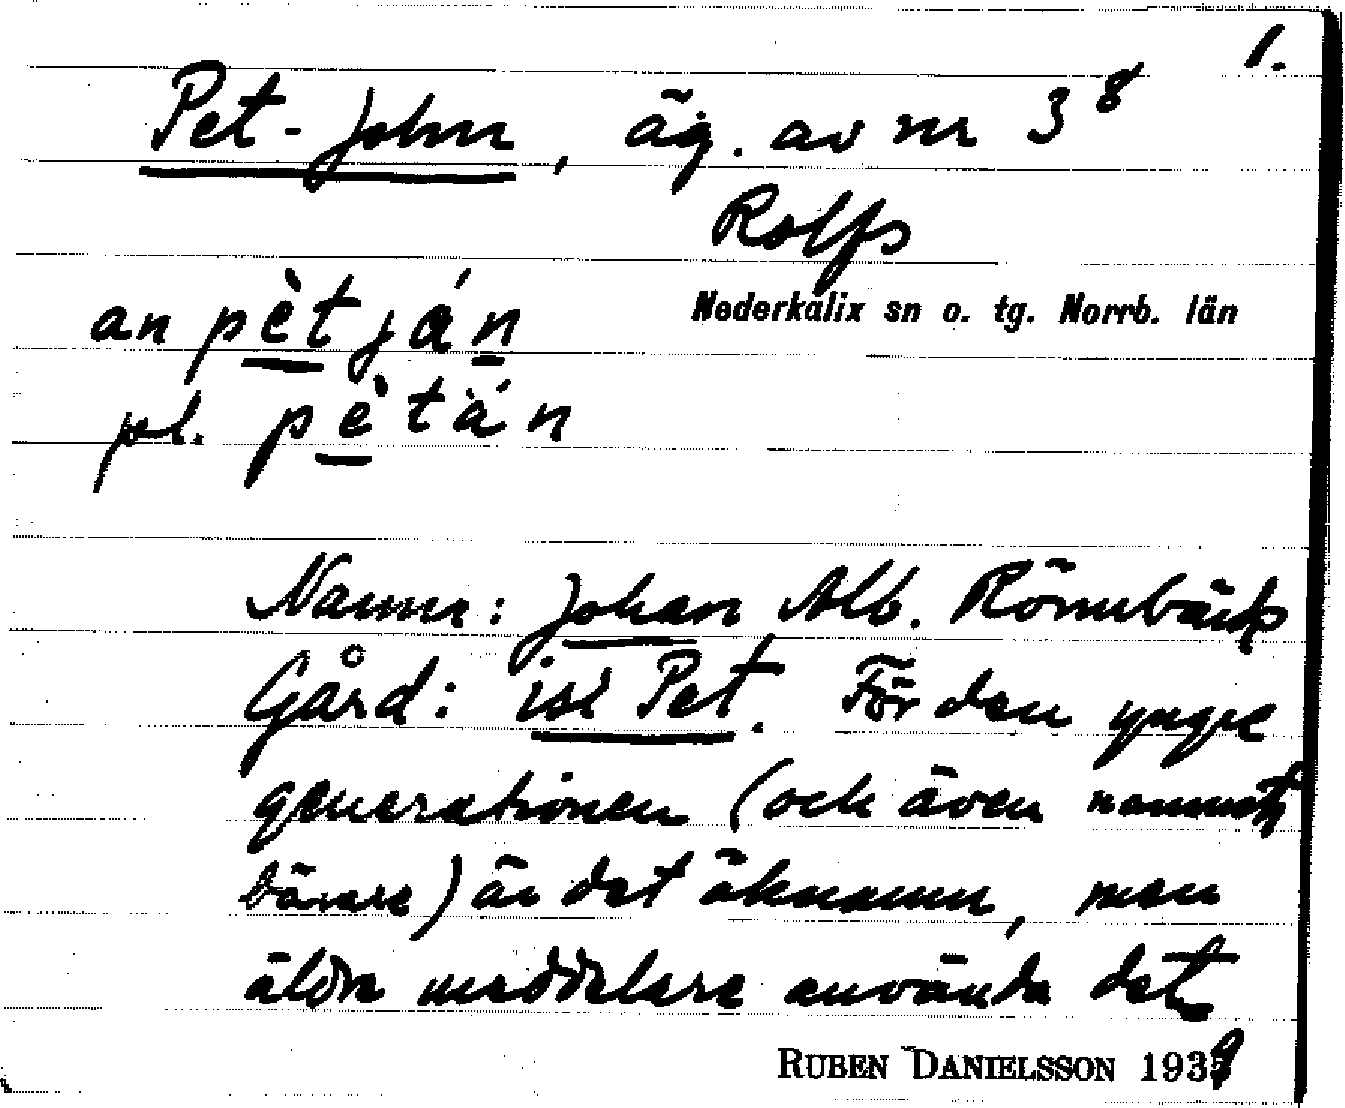 1.
Pet-John, äg. av nr 3⁸
Rolfs
an pètján
Nederkalix sn o. tg. Norrb. län
pl. pètán
Namn: Johan Alb. Rönnbäck
Gård: isl Pet. För den yngre
generationen (och även namnets
bärare) är det öknamn, men
äldre meddelare använda det
RUBEN DANIELSSON 1939